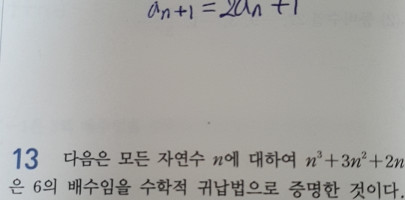 aₙ₊₁=2aₙ+1
13 다음은 모든 자연수 n에 대하여 n³+3n²+2n
은 6의 배수임을 수학적 귀납법으로 증명한 것이다.